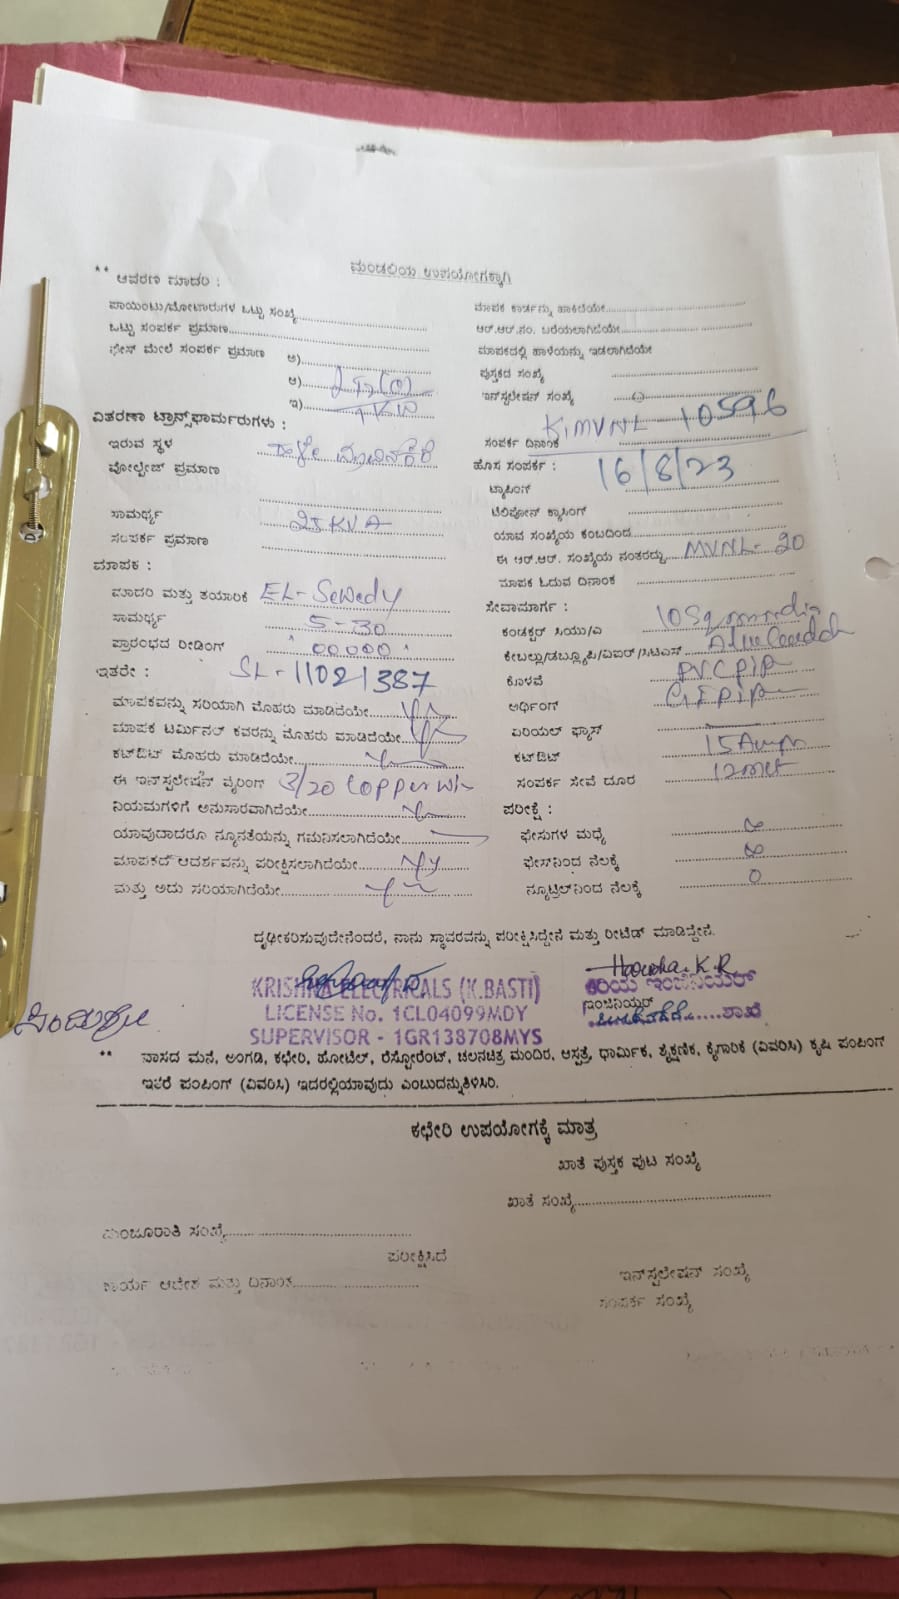 ಮಂಡಲಿಯ ಉಪಯೋಗಕ್ಕಾಗಿ
** ಆವರಣ ಮಾದರಿ :
ಪಾಯಿಂಟು/ಮೋಟಾರುಗಳ ಒಟ್ಟು ಸಂಖ್ಯೆ
ಒಟ್ಟು ಸಂಪರ್ಕ ಪ್ರಮಾಣ
ಫೇಸ್ ಮೇಲೆ ಸಂಪರ್ಕ ಪ್ರಮಾಣ ಅ)
ಆ)
ಇ) 1KW
ವಿತರಣಾ ಟ್ರಾನ್ಸ್‌ಫಾರ್ಮರುಗಳು :
ಇರುವ ಸ್ಥಳ ಹಳೇ
ವೋಲ್ಟೇಜ್ ಪ್ರಮಾಣ
ಸಾಮರ್ಥ್ಯ 25KVA
ಸಂಪರ್ಕ ಪ್ರಮಾಣ
ಮಾಪಕ :
ಮಾದರಿ ಮತ್ತು ತಯಾರಿಕೆ EL-Sewedy
ಸಾಮರ್ಥ್ಯ 5-30
ಪ್ರಾರಂಭದ ರೀಡಿಂಗ್ 00000
ಇತರೇ : SL-11021387
ಮಾಪಕವನ್ನು ಸರಿಯಾಗಿ ಮೊಹರು ಮಾಡಿದೆಯೇ
ಮಾಪಕ ಟರ್ಮಿನಲ್ ಕವರನ್ನು ಮೊಹರು ಮಾಡಿದೆಯೇ
ಕಟ್‌ಔಟ್ ಮೊಹರು ಮಾಡಿದೆಯೇ
ಈ ಇನ್‌ಸ್ಟಲೇಷನ್ ವೈರಿಂಗ್ 3/20 Copper
ನಿಯಮಗಳಿಗೆ ಅನುಸಾರವಾಗಿದೆಯೇ
ಯಾವುದಾದರೂ ನ್ಯೂನತೆಯನ್ನು ಗಮನಿಸಲಾಗಿದೆಯೇ
ಮಾಪಕದ ಆದರ್ಶವನ್ನು ಪರೀಕ್ಷಿಸಲಾಗಿದೆಯೇ
ಮತ್ತು ಅದು ಸರಿಯಾಗಿದೆಯೇ
ಮಾಪಕ ಕಾರ್ಡನ್ನು ಹಾಕಿದೆಯೇ
ಆರ್.ಆರ್.ನಂ. ಬರೆಯಲಾಗಿದೆಯೇ
ಮಾಪಕದಲ್ಲಿ ಹಾಳೆಯನ್ನು ಇಡಲಾಗಿದೆಯೇ
ಪುಸ್ತಕದ ಸಂಖ್ಯೆ
ಇನ್‌ಸ್ಟಲೇಷನ್ ಸಂಖ್ಯೆ
KMVNL-10596
ಸಂಪರ್ಕ ದಿನಾಂಕ
ಹೊಸ ಸಂಪರ್ಕ : 16/8/23
ಟ್ಯಾಪಿಂಗ್
ಟೆಲಿಫೋನ್ ಕ್ರಾಸಿಂಗ್
ಯಾವ ಸಂಖ್ಯೆಯ ಕಂಬದಿಂದ
ಈ ಆರ್.ಆರ್. ಸಂಖ್ಯೆಯ ನಂತರದ್ದು MVNL-20
ಮಾಪಕ ಓದುವ ದಿನಾಂಕ
ಸೇವಾಮಾರ್ಗ :
ಕಂಡಕ್ಟರ್ ಸಿಯು/ಎ
ಕೇಬಲ್ಲು/ಡಬ್ಲ್ಯೂಪಿ/ವಿಐಆರ್/ಸಿಟಿಎಸ್
ಕೊಳವೆ PVC Pip
ಅರ್ಥಿಂಗ್
ಏರಿಯಲ್ ಫ್ಯೂಸ್
ಕಟ್‌ಔಟ್ 15 Amp
ಸಂಪರ್ಕ ಸೇವೆ ದೂರ 12
ಪರೀಕ್ಷೆ :
ಫೇಸುಗಳ ಮಧ್ಯೆ ∞
ಫೇಸ್‌ನಿಂದ ನೆಲಕ್ಕೆ ∞
ನ್ಯೂಟ್ರಲ್‌ನಿಂದ ನೆಲಕ್ಕೆ 0
ದೃಢೀಕರಿಸುವುದೇನೆಂದರೆ, ನಾನು ಸ್ಥಾವರವನ್ನು ಪರೀಕ್ಷಿಸಿದ್ದೇನೆ ಮತ್ತು ರೀಟೆಡ್ ಮಾಡಿದ್ದೇನೆ.
KRISHNA ELECTRICALS (K.BASTI)
LICENSE No. 1CL04099MDY
SUPERVISOR - 1GR138708MYS
ಕಿರಿಯ ಇಂಜಿನಿಯರ್
ಇಂಜಿನಿಯರ್
ಶಾಖೆ
** ವಾಸದ ಮನೆ, ಅಂಗಡಿ, ಕಛೇರಿ, ಹೋಟೆಲ್, ರೆಸ್ಟೋರೆಂಟ್, ಚಲನಚಿತ್ರ ಮಂದಿರ, ಆಸ್ಪತ್ರೆ, ಧಾರ್ಮಿಕ, ಶೈಕ್ಷಣಿಕ, ಕೈಗಾರಿಕೆ (ವಿವರಿಸಿ) ಕೃಷಿ ಪಂಪಿಂಗ್
ಇತರೆ ಪಂಪಿಂಗ್ (ವಿವರಿಸಿ) ಇದರಲ್ಲಿಯಾವುದು ಎಂಬುದನ್ನುತಿಳಿಸಿರಿ.
ಕಛೇರಿ ಉಪಯೋಗಕ್ಕೆ ಮಾತ್ರ
ಖಾತೆ ಪುಸ್ತಕ ಪುಟ ಸಂಖ್ಯೆ
ಖಾತೆ ಸಂಖ್ಯೆ
ಮಂಜೂರಾತಿ ಸಂಖ್ಯೆ
ಪರೀಕ್ಷಿಸಿದೆ
ಕಾರ್ಯ ಆದೇಶ ಮತ್ತು ದಿನಾಂಕ
ಇನ್‌ಸ್ಟಲೇಷನ್ ಸಂಖ್ಯೆ
ಸಂಪರ್ಕ ಸಂಖ್ಯೆ